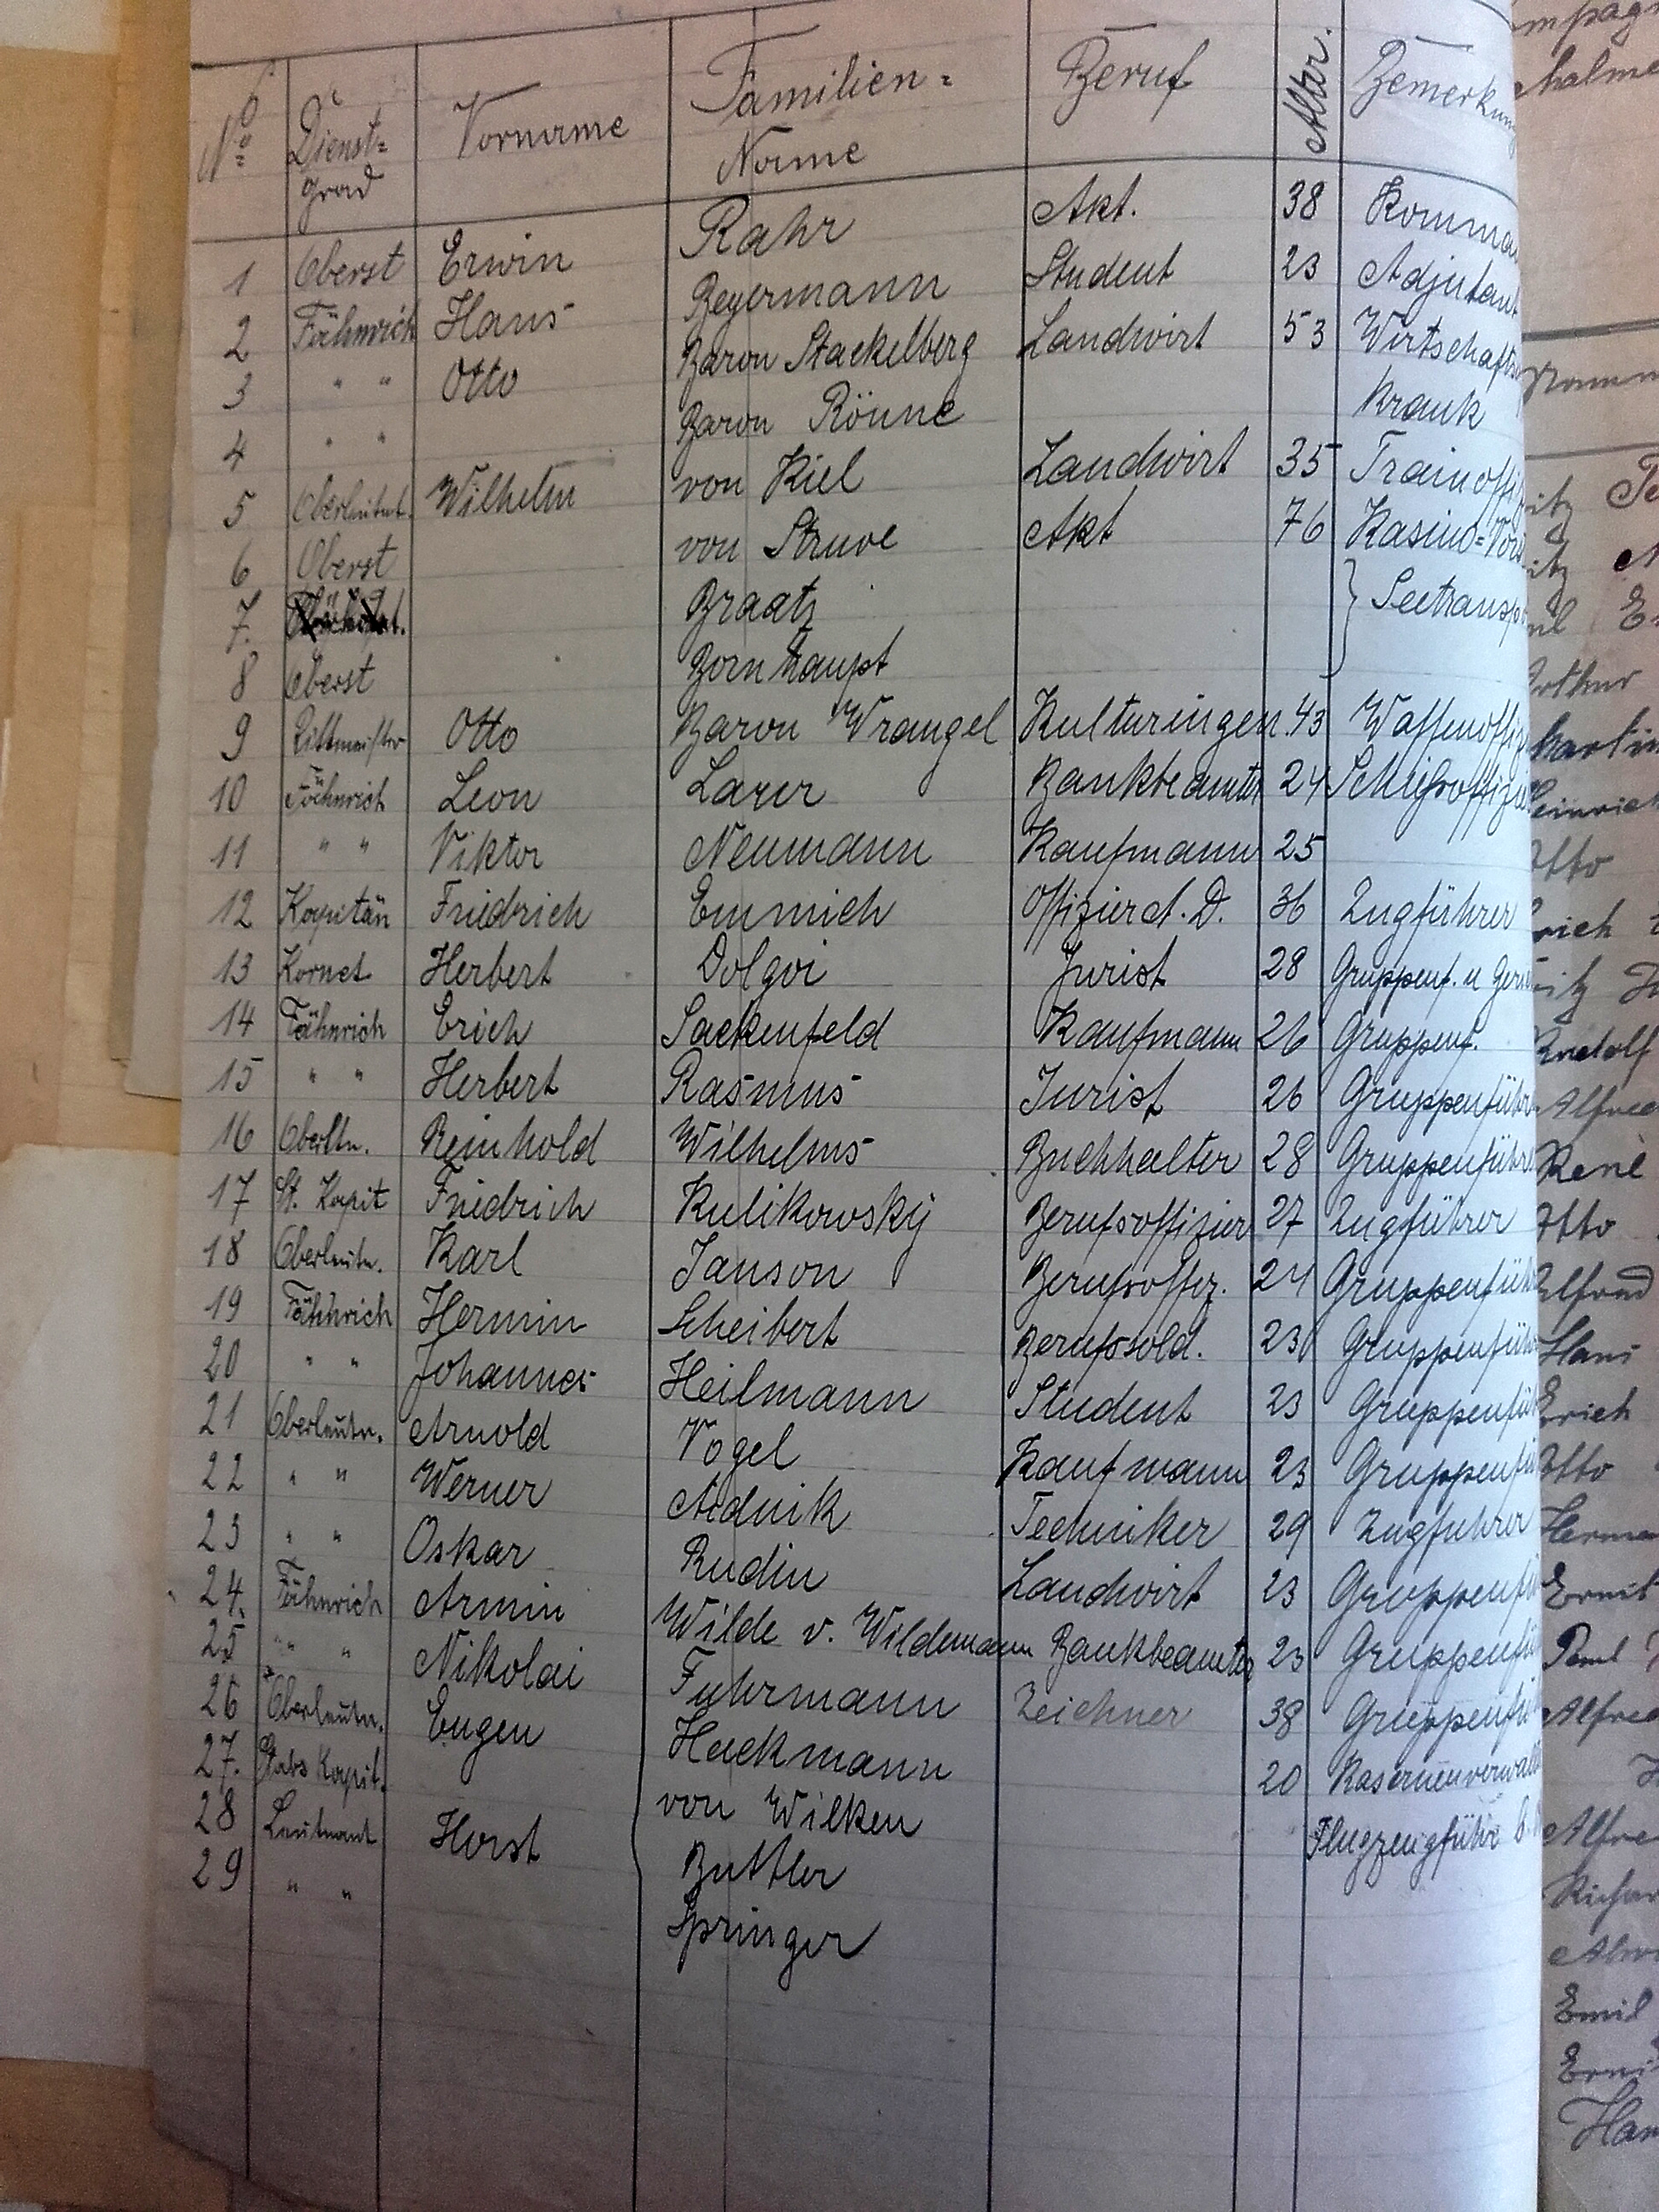 No Dienst= grad Vorname Familien= Name Beruf Alter. Bemerkung
1 Oberst Erwin Rahr Akt. 38 Komman
2 Fähnrich Hans Beyermann Student 23 Adjutant
3 " " Otto Baron Stackelberg Landwirt 53 Wirtschafts
4 " " Baron Rönne Krank
5 Oberleutnt. Wilhelm von Kiel Landwirt 35 Trainoffi
6 Oberst von Struve Akt 76 Kasino=Vors
7. Braatz } Seetransp
8 Oberst Bornhaupt
9 Rittmeister Otto Baron Wrangel Kulturingen. 43 Waffenoffiz
10 Fähnrich Leon Larer Bankbeamter 24 Schießoffizie
11 " " Viktor Neumann Kaufmann 25
12 Kapitän Friedrich Emmich Offizier A. D. 36 Zugführer
13 Kornet Herbert Dolgoi Jurist 28 Gruppenf. u Ger
14 Fähnrich Erich Sackenfeld Kaufmann 26 Gruppenf.
15 " " Herbert Rasmus Jurist 26 Gruppenführ
16 Oberltn. Reinhold Wilhelms Buchhalter 28 Gruppenführe
17 St. Kapit Friedrich Kulikowsky Berufsoffizier 27 Zugführer
18 Oberleutn. Karl Janson Berufsoffiz. 24 Gruppenfüh
19 Fähnrich Hermin Scheibert Berufssold. 23 Gruppenfüh
20 " " Johannes Heilmann Student 23 Gruppenfü
21 Oberleutn. Arnold Vogel Kaufmann 23 Gruppenfü
22 " " Werner Ardnik Techniker 29 Zugführer
23 " " Oskar Rudin Landwirt 23 Gruppenfü
24. Fähnrich Armin Wilde v. Wildemann Bankbeamter 23 Gruppenfü
25 " " Nikolai Fuhrmann Zeichner 38 Gruppenfü
26 Oberleutn. Eugen Huckmann 20 Kasernenverwalt
27. Stabs Kapit. von Wilken Flugzeugführ
28 Leutnant Horst Buttler
29 " " Springer
Arthur
Martin
Heinrich
Otto
Rudolf
Alfred
René
Otto
Hans
Erich
Otto
Herma
Ernst
Paul
Alfred
Alfre
Richar
Emil